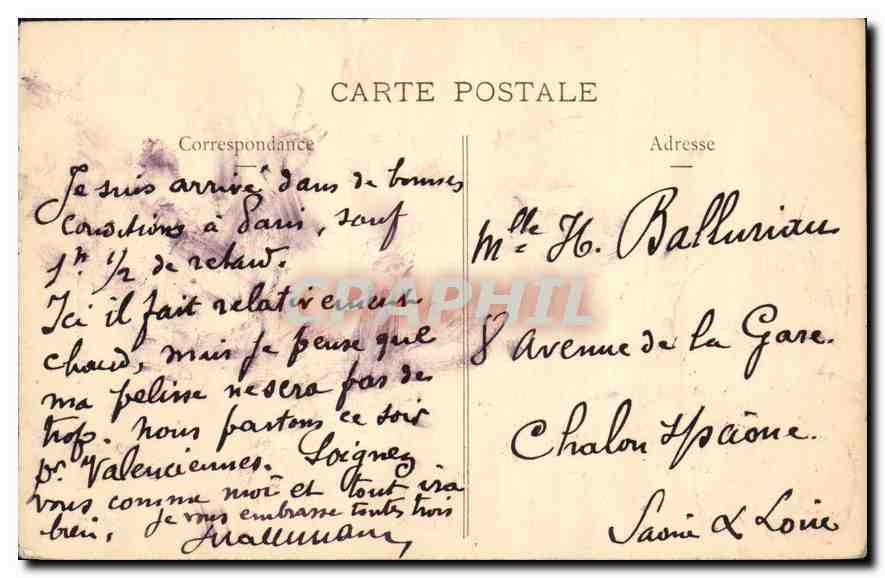 CARTE POSTALE
Correspondance
Je suis arrivé dans de bonnes
conditions à Paris, sauf
1h 1/2 de retard.
Ici il fait relativement
chaud, mais je pense que
ma pelisse ne sera pas de
trop. Nous partons ce soir
pr. Valenciennes. Soignez
vous comme moi et tout ira
bien. Je vous embrasse toutes trois
Adresse
Mlle H. Balluriau
8 Avenue de la Gare.
Chalon s/Saône.
Saône & Loire
CPAPHIL